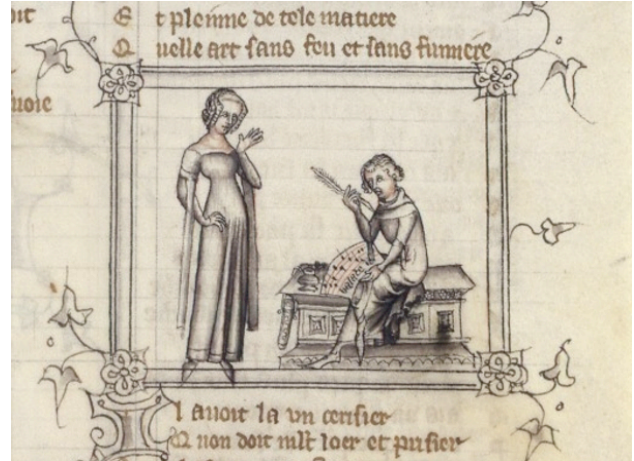 oit
E t plenne de tele matiere
Q uelle art sans feu et sans fumiere
uoie
l auoit la un cerisier
Q non doit mlt loer et prisier